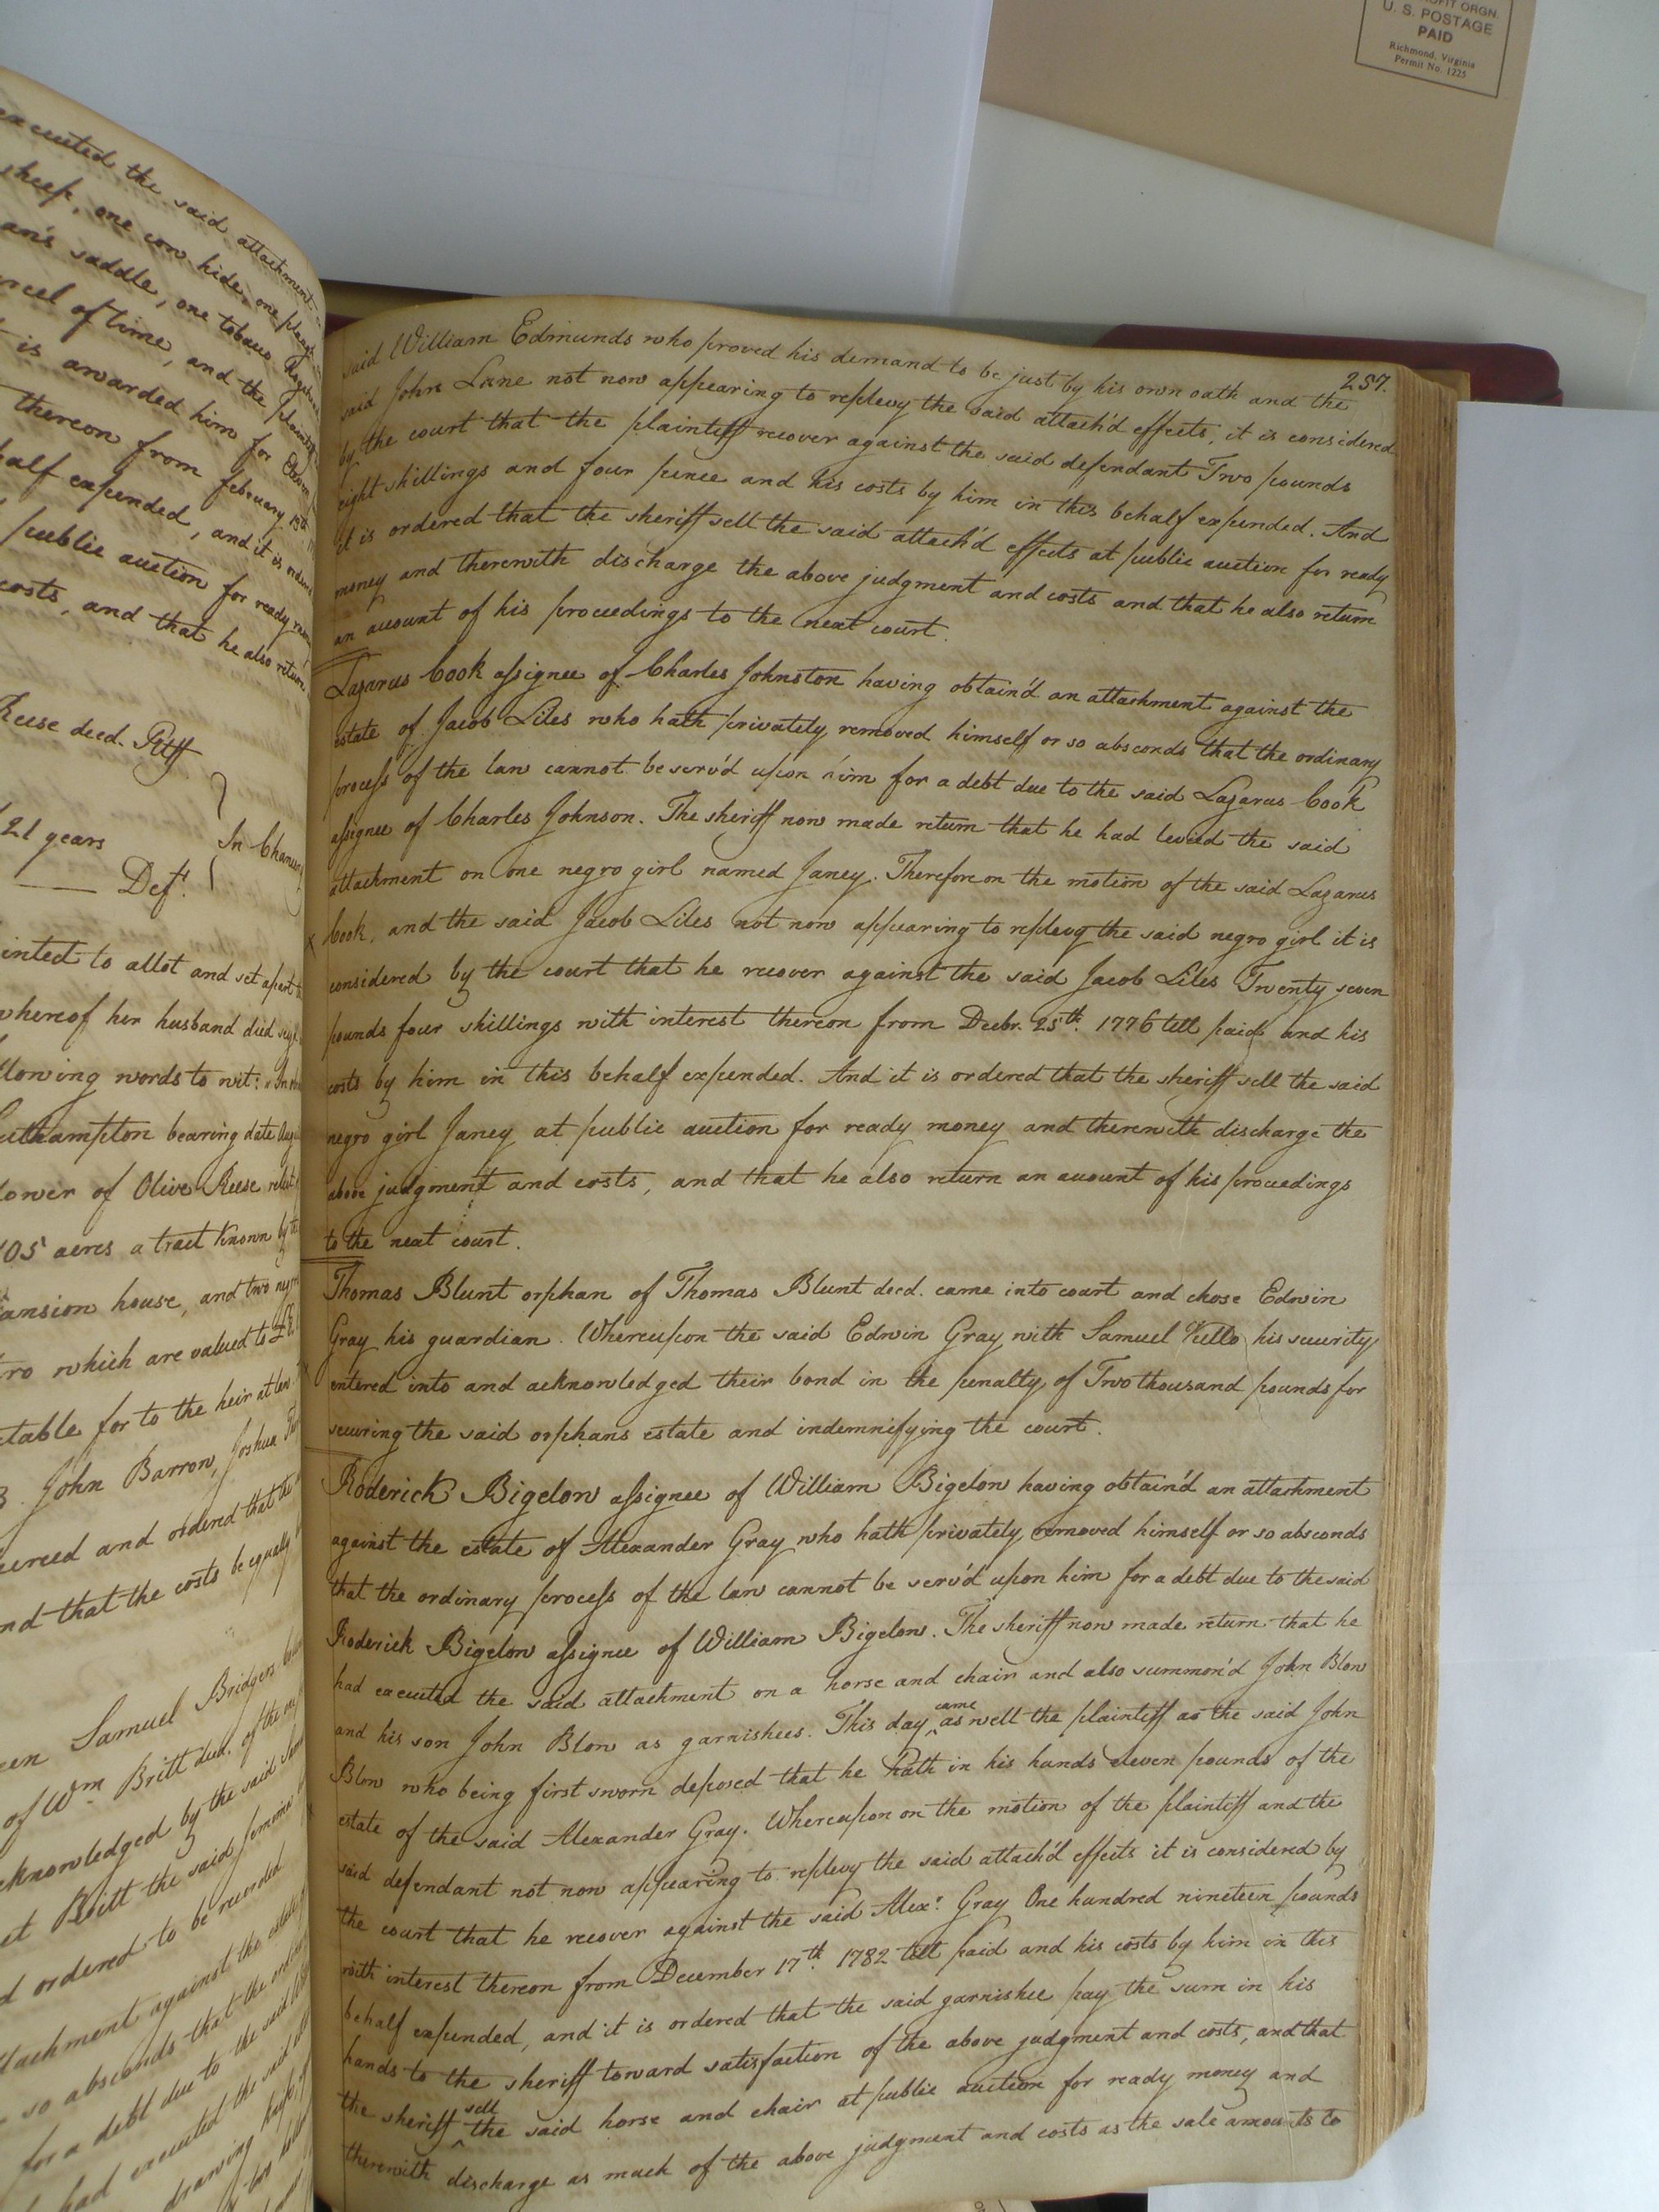 OFIT ORGN.
U. S. POSTAGE
PAID
Richmond, Virginia
Permit No. 1225
executed the said attachment
sheep, one cow hide, one
an's saddle, one tobacco
rcel of time, and the plaintiff
is awarded him for
thereon from february 13th
half expended, and it is
public auction for ready
costs, and that he also return
Reese deed. Pltff
21 years
In Chancery
Deft.
inted to allot and set apart
whereof her husband died
llowing words to wit:
uthampton bearing date
dower of Olive Reese
105 acres a tract known by the
ansion house, and two
ro which are valued to £
table for to the heir at law
3. John Barrow, Joshua
ecreed and ordered that the
nd that the costs be equally
een Samuel Bridgers
of Wm Britt deed. of the
cknowledged by the said
et Britt the said
d ordered to be recorded
ttachment against the estate
so absconds that the
for a debt due to the said
had executed the said
drawing
257.
said William Edmunds who proved his demand to be just by his own oath and the
said John Lane not now appearing to replevy the said attach'd effects, it is considered
by the court that the plaintiff recover against the said defendant Two pounds
eight shillings and four pence and his costs by him in this behalf expended. And
it is ordered that the sheriff sell the said attach'd effects at public auction for ready
money and therewith discharge the above judgment and costs and that he also return
an account of his proceedings to the next court.
Lazarus Cook assignee of Charles Johnston having obtain'd an attachment against the
estate of Jacob Liles who hath privately removed himself or so absconds that the ordinary
process of the law cannot be serv'd upon him for a debt due to the said Lazarus Cook
assignee of Charles Johnson. The sheriff now made return that he had levied the said
attachment on one negro girl named Janey. Therefore on the motion of the said Lazarus
x Cook, and the said Jacob Liles not now appearing to replevy the said negro girl it is
considered by the court that he recover against the said Jacob Liles Twenty seven
pounds four shillings with interest thereon from Decbr. 25th. 1776 till paid and his
costs by him in this behalf expended. And it is ordered that the sheriff sell the said
negro girl Janey at public auction for ready money and therewith discharge the
above judgment and costs, and that he also return an account of his proceedings
to the next court.
Thomas Blunt orphan of Thomas Blunt deed. came into court and chose Edwin
Gray his guardian. Whereupon the said Edwin Gray with Samuel Kello his security
entered into and acknowledged their bond in the penalty of Two thousand pounds for
securing the said orphans estate and indemnifying the court.
Roderick Bigelow assignee of William Bigelow having obtain'd an attachment
against the estate of Alexander Gray who hath privately removed himself or so absconds
that the ordinary process of the law cannot be serv'd upon him for a debt due to the said
Roderick Bigelow assignee of William Bigelow. The sheriff now made return that he
had executed the said attachment on a horse and chair and also summon'd John Blow
and his son John Blow as garnishees. This day came as well the plaintiff as the said John
Blow who being first sworn deposed that he hath in his hands eleven pounds of the
estate of the said Alexander Gray. Whereupon on the motion of the plaintiff and the
said defendant not now appearing to replevy the said attach'd effects it is considered by
the court that he recover against the said Alexr. Gray One hundred nineteen pounds
with interest thereon from December 17th. 1782 till paid and his costs by him in this
behalf expended, and it is ordered that the said garnishee pay the sum in his
hands to the sheriff toward satisfaction of the above judgment and costs, and that
the sheriff sell the said horse and chair at public auction for ready money and
therewith discharge as much of the above judgment and costs as the sale amounts to